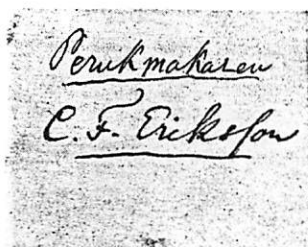 Perukmakaren
C. F. Eriksson